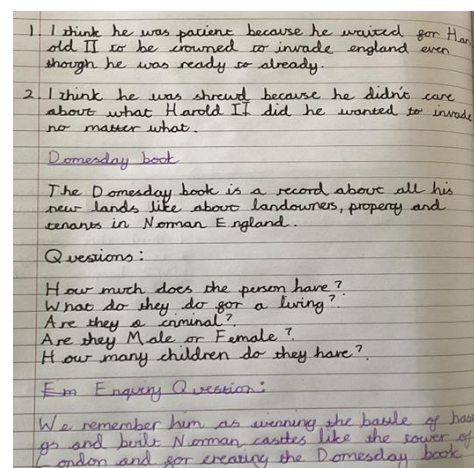 1. I think he was patient because he waited for Har
old II to be crowned to invade england even
though he was ready to already.
2. I think he was shrewd because he didn't care
about what Harold II did he wanted to invade
no matter what.
Domesday book
The Domesday book is a record about all his
new lands like about landowners, property and
tenants in Norman England.
Questions:
How much does the person have?
What do they do for a living?
Are they a criminal?
Are they Male or Female?
How many children do they have?
Em Enquiry Question:
We remember him as winning the battle of has
gs and built Norman castles like the tower of
London and for creating the Domesday book